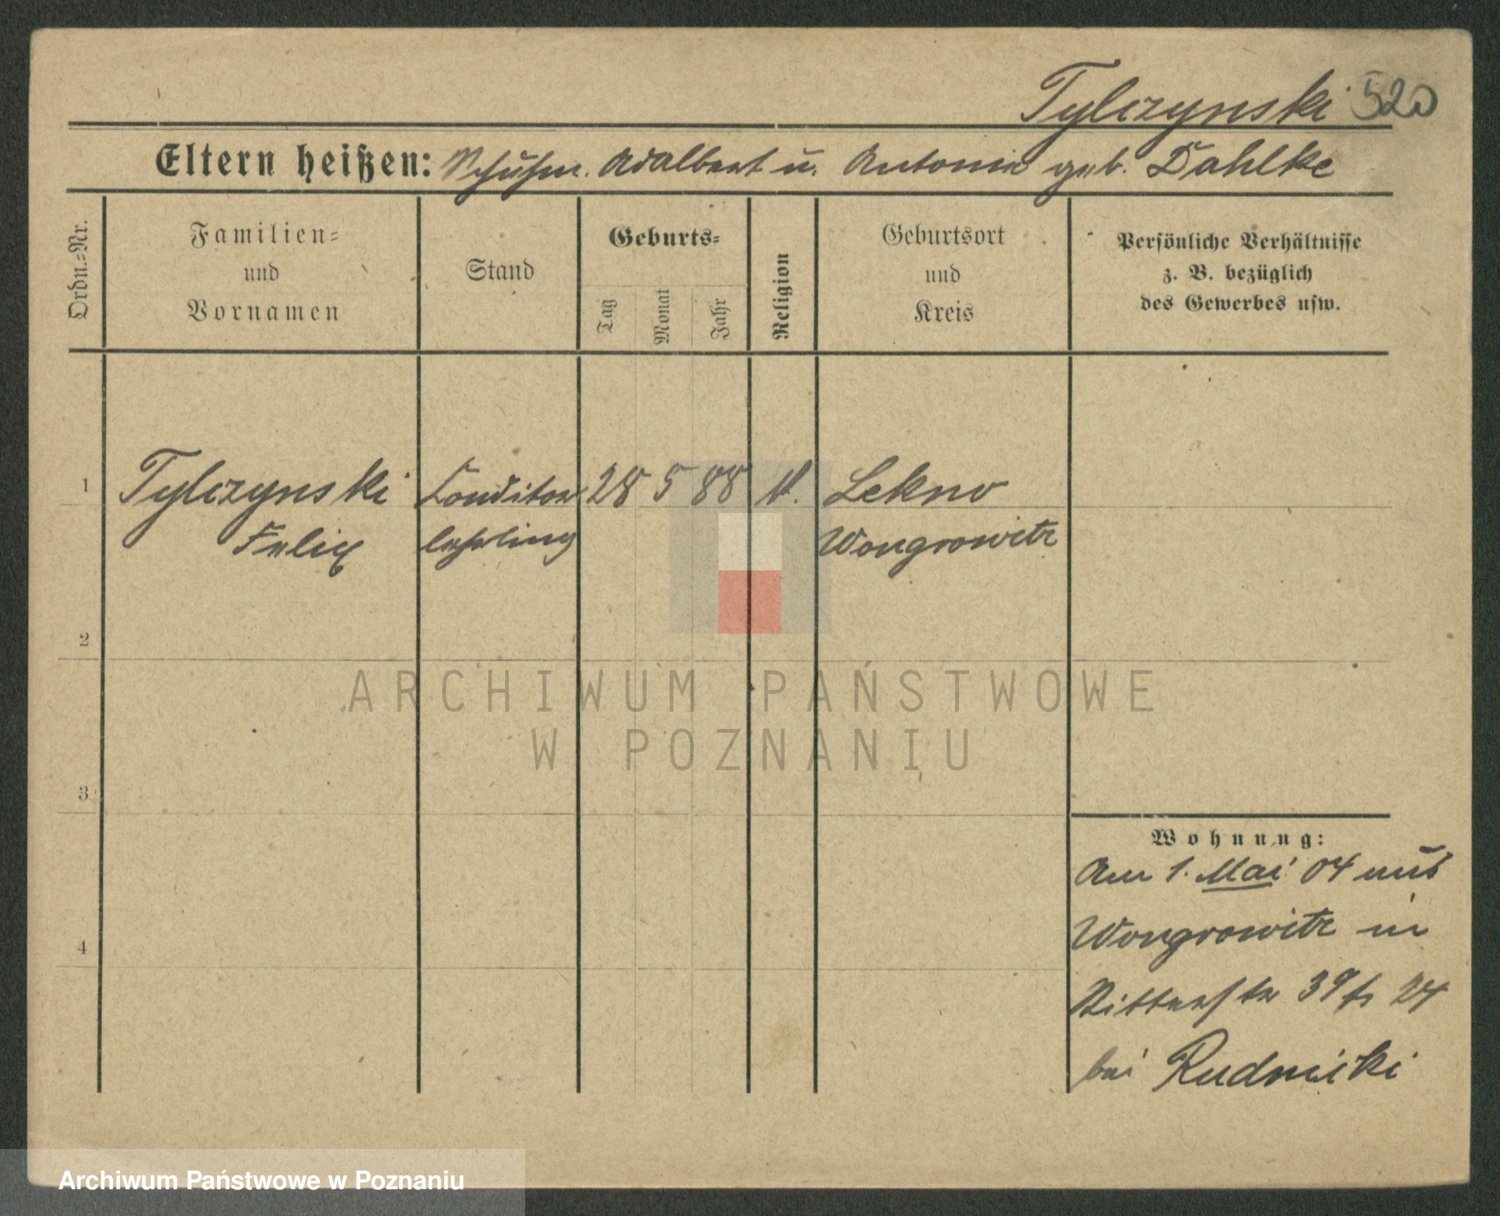 Tylczynski 520
Eltern heißen: Schuhm. Adalbert u. Antonie geb. Dahlke
Ordn.=Nr.
Familien=
und
Vornamen
Stand
Geburts=
Tag
Monat
Jahr
Religion
Geburtsort
und
Kreis
Persönliche Verhältnisse
z. B. bezüglich
des Gewerbes usw.
1 Tylczynski Conditor 28 5 88 Lekno
Felix lehrling Wongrowitz
2
3
4
Wohnung:
Am 1. Mai 04 aus
Wongrowitz in
Ritterstr 39 24
bei Rudnicki
ARCHIWUM PAŃSTWOWE
W POZNANIU
Archiwum Państwowe w Poznaniu